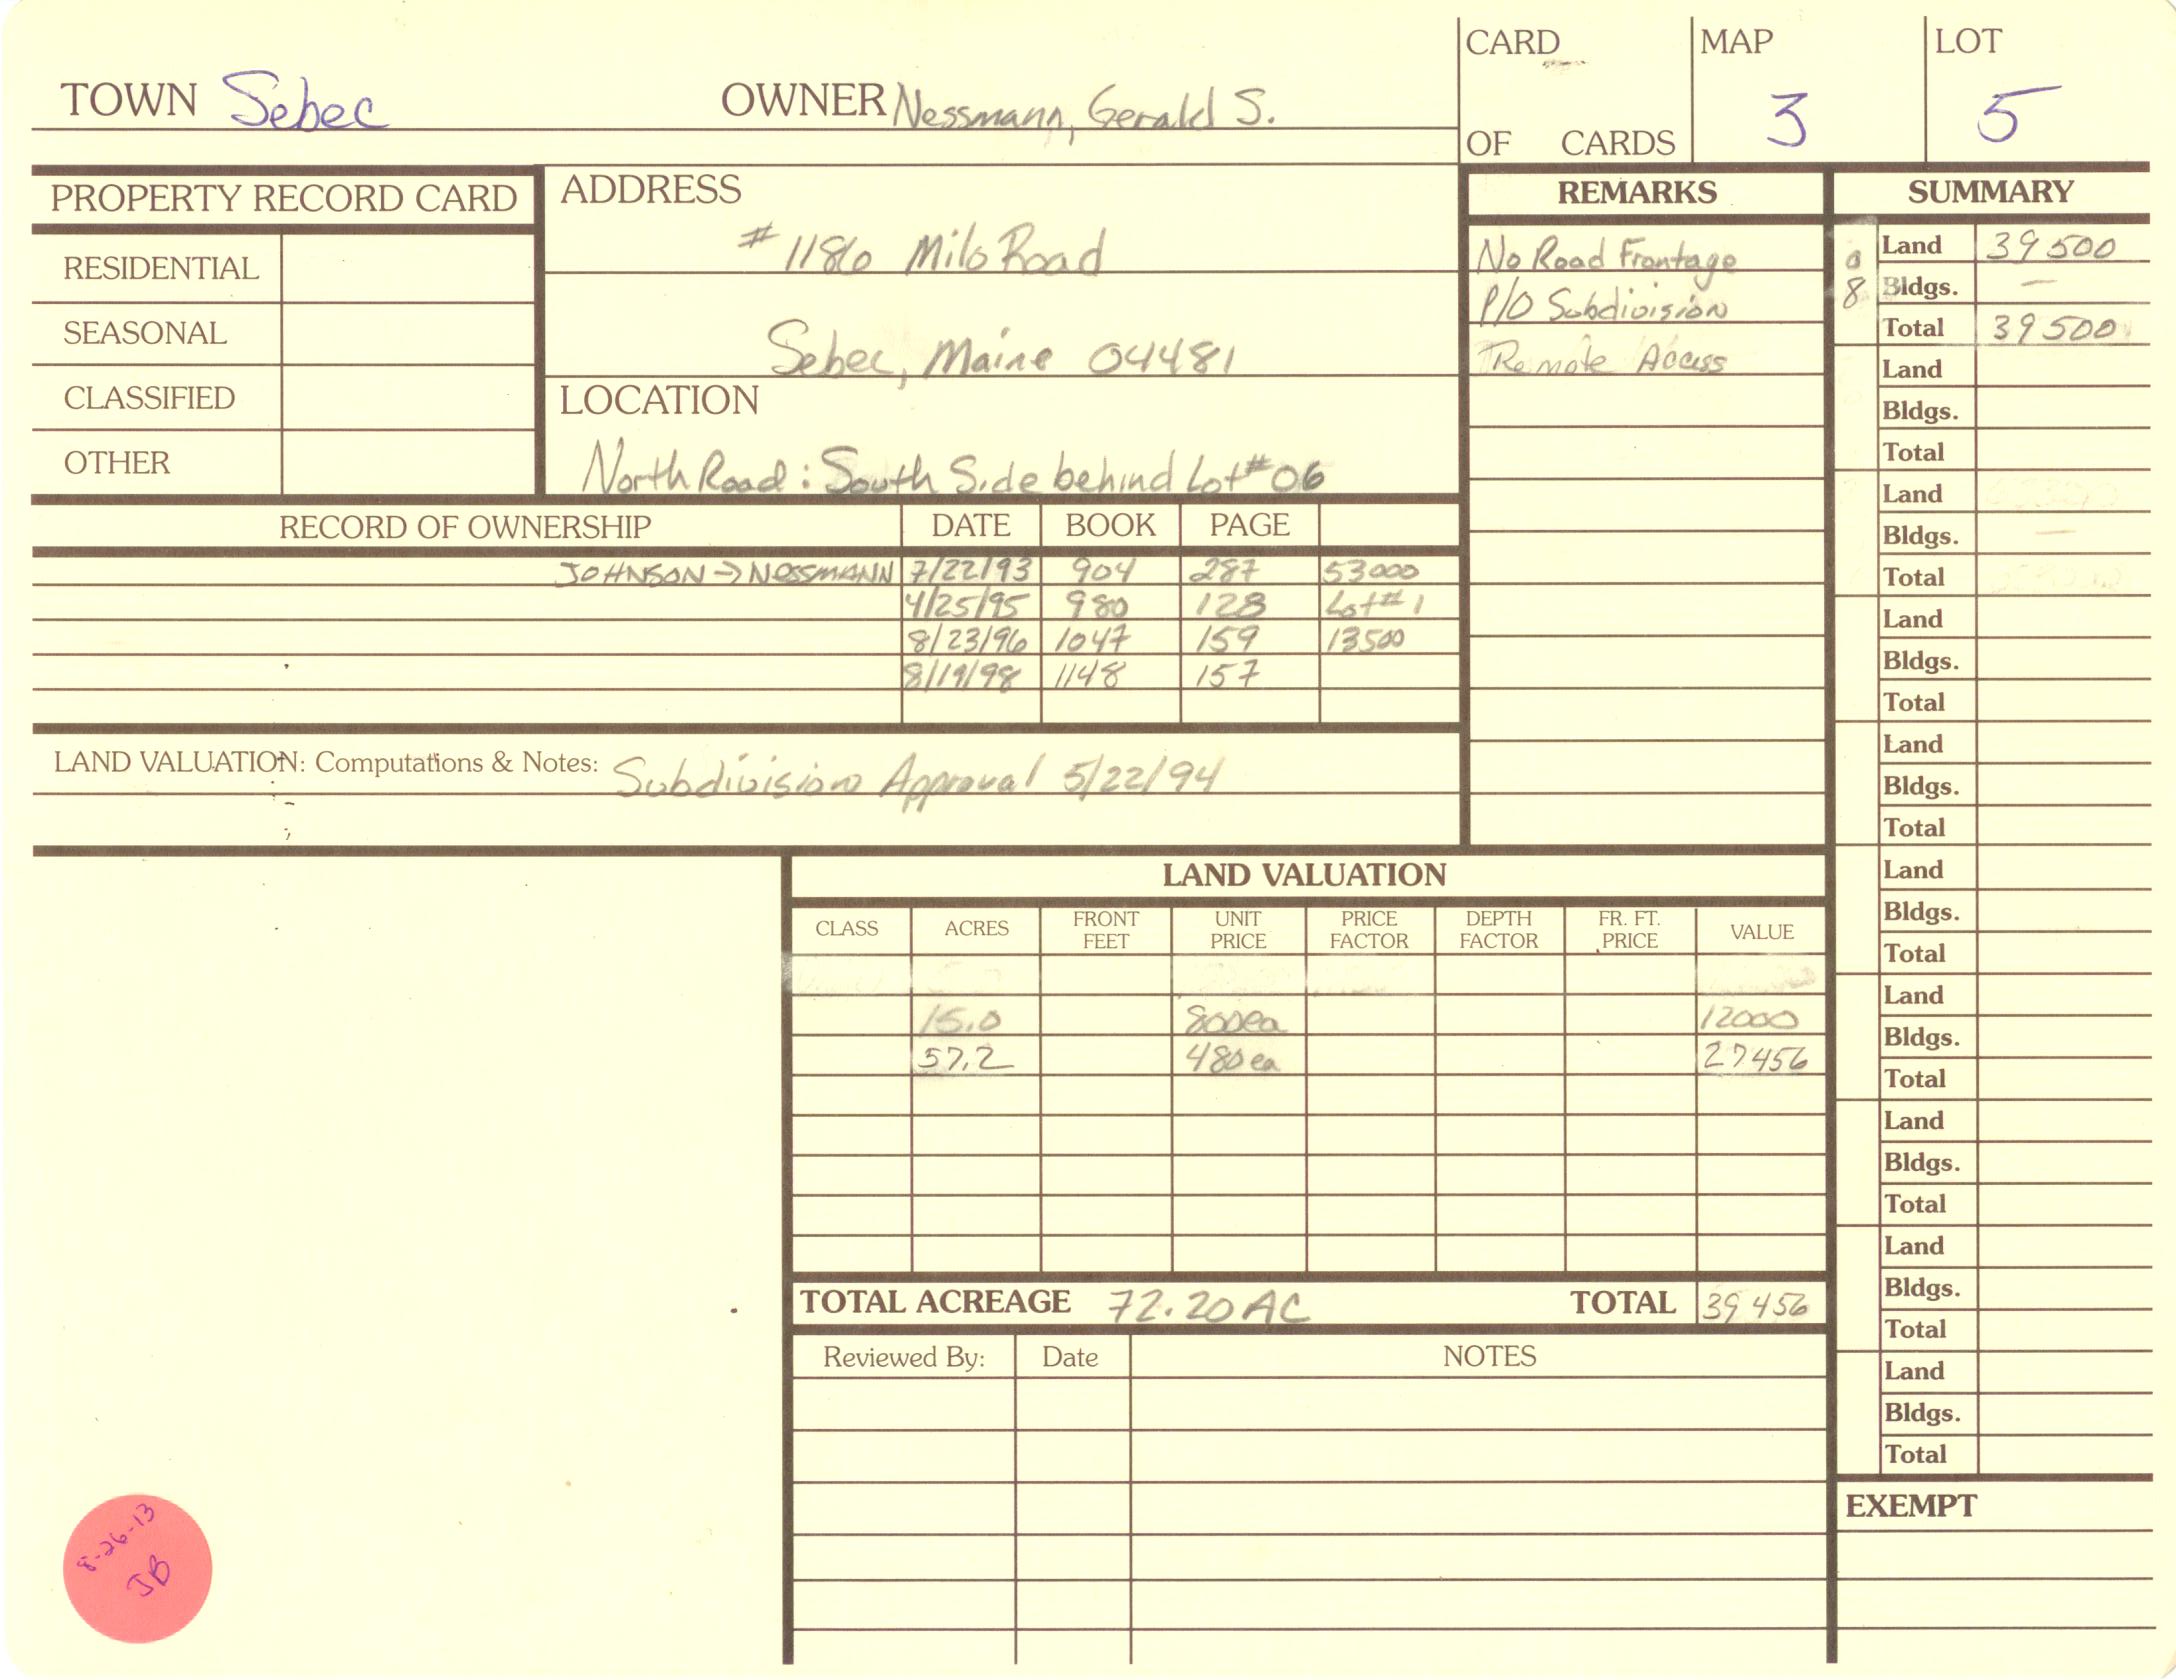 TOWN Sebec OWNER Nessmann, Gerald S.
CARD
OF CARDS
MAP
3
LOT
5
PROPERTY RECORD CARD
RESIDENTIAL
SEASONAL
CLASSIFIED
OTHER
ADDRESS
#1186 Milo Road
Sebec, Maine 04481
LOCATION
North Road: South Side behind Lot #06
REMARKS
No Road Frontage
P/O Subdivision
Remote Access
RECORD OF OWNERSHIP DATE BOOK PAGE
JOHNSON → NESSMANN 7/22/93 904 287 53000
4/25/95 980 128 Lot #1
8/23/96 1047 159 13500
8/19/98 1148 157
LAND VALUATION: Computations & Notes: Subdivision Approval 5/22/94
LAND VALUATION
CLASS ACRES FRONT FEET UNIT PRICE PRICE FACTOR DEPTH FACTOR FR. FT. PRICE VALUE
15.0 800ea 12000
57.2 480ea 27456
TOTAL ACREAGE 72.20 AC TOTAL 39456
Reviewed By: Date NOTES
SUMMARY
08
Land 39500
Bldgs. —
Total 39500
Land
Bldgs.
Total
Land
Bldgs. —
Total
Land
Bldgs.
Total
Land
Bldgs.
Total
Land
Bldgs.
Total
Land
Bldgs.
Total
Land
Bldgs.
Total
Land
Bldgs.
Total
Land
Bldgs.
Total
EXEMPT
8-26-13
JB